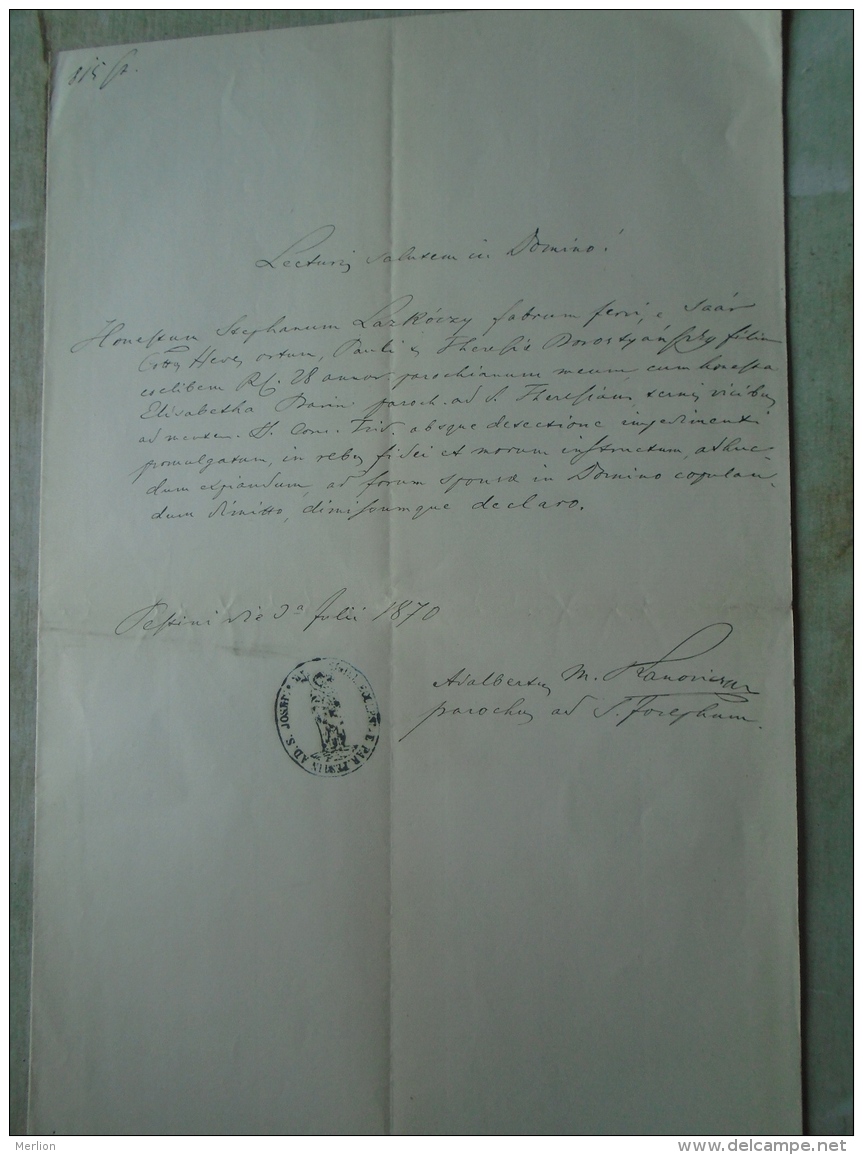 815
Lecturis salutem in Domino!
Honestum Stephanum Lazkóczy fabrum ferri, e Saár
Cottu Heves ortum, Pauli & Theresiæ Borostyánszky filium
coelibem RC. 28 annor parochianum meum cum honesta
Elisabetha paroch. ad S. Theresiam ternis vicibus
ad mentem S. Conc. Trid. absque detectione impedimenti
promulgatum, in rebus fidei et morum instructum, adhuc
dum expiandum, ad forum sponsæ in Domino copulan-
dum dimitto, dimissumque declaro.
Pestini die Julii 1870
Adalbertus M.
parochus ad S. Josephum.
AD. S. JOSEPH
Merlion
www.delcampe.net